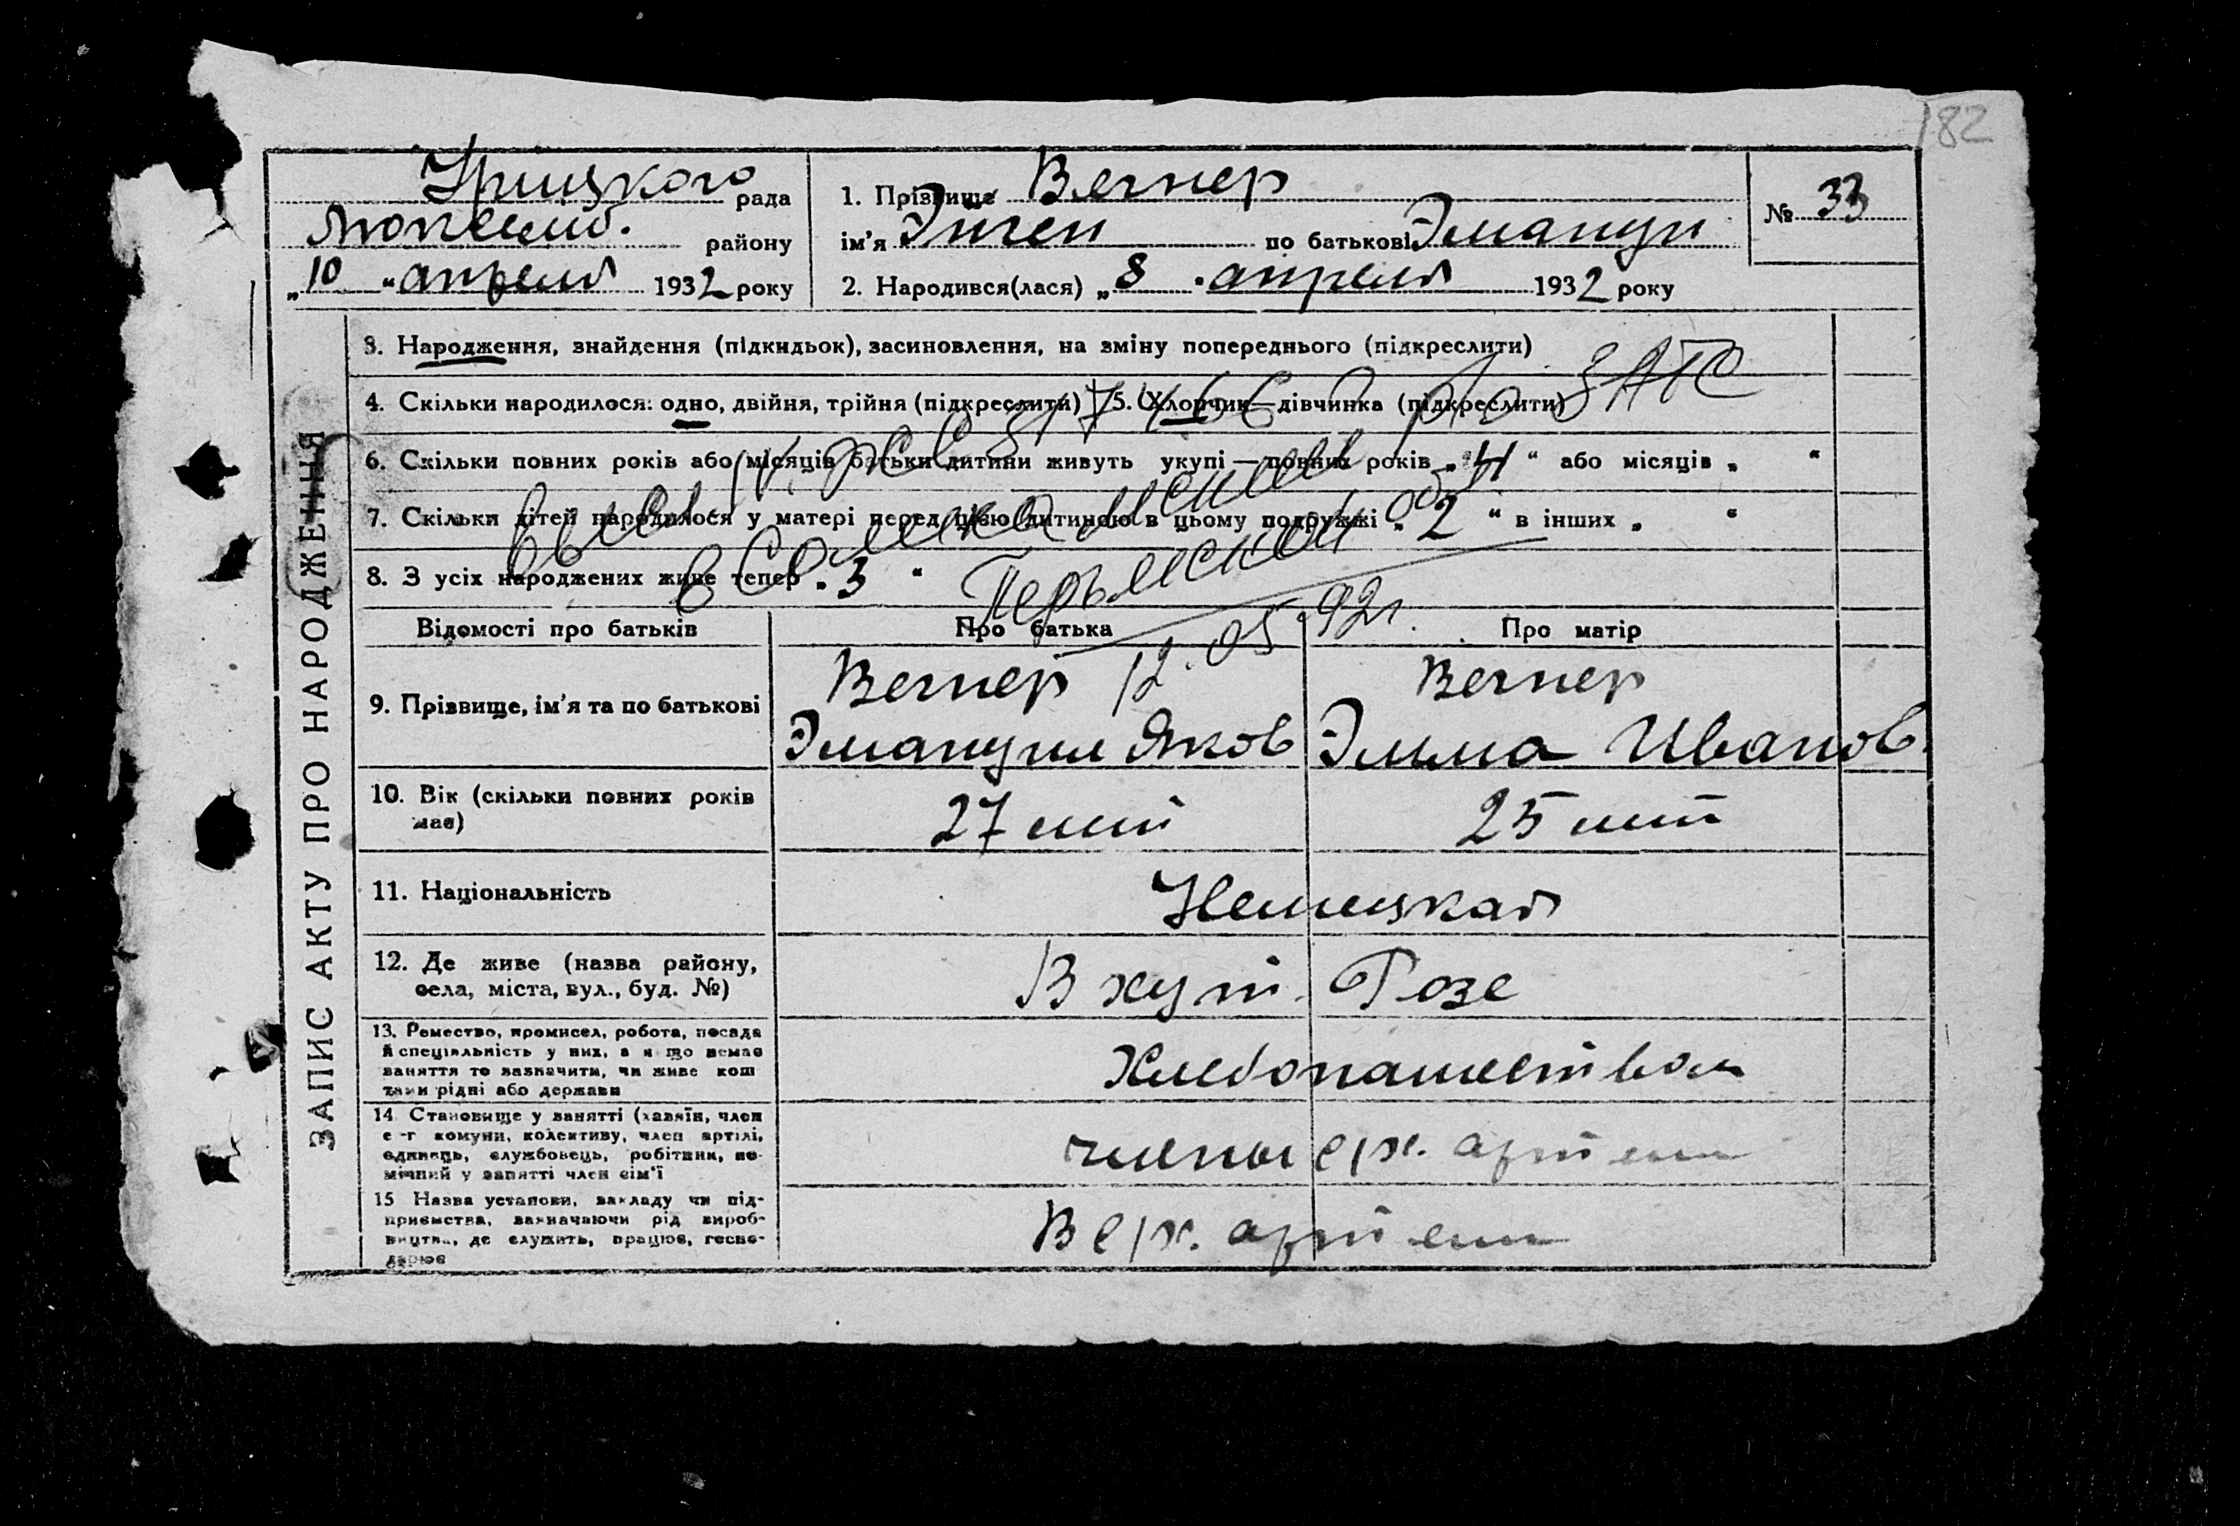 182
Урицкого рада
района
району
„10“ апреля 1932 року
1. Прізвище Вегнер
ім'я Эйген по батькові Эмануи
2. Народився(лася) „8“ апреля 1932 року
№ 33
ЗАПИС АКТУ ПРО НАРОДЖЕННЯ
3. Народження, знайдення (підкидьок), засиновлення, на зміну попереднього (підкреслити)
4. Скільки народилося: одно, двійня, трійня (підкреслити) 5. Хлопчик—дівчинка (підкреслити)
ЗАГС
6. Скільки повних років або місяців батьки дитини живуть укупі — повних років „4“ або місяців „ “
7. Скільки дітей народилося у матері перед цією дитиною в цьому подружжі „2“ в інших „ “
8. З усіх народжених живе тепер „3“
Пермской обл
12.05.92г.
Відомості про батьків
Про батька
Про матір
9. Прізвище, ім'я та по батькові
Вегнер
Эмануил Яков
Вегнер
Эмма Иванов.
10. Вік (скільки повних років має)
27 лет
25 лет
11. Національність
Немецкая
12. Де живе (назва району,
села, міста, вул., буд. №)
В хут. Розе
13. Ремество, промисел, робота, посада
й спеціяльність у них, а якщо немає
заняття то зазначити, чи живе кош
тами рідні або держави
Хлебопашеством
14. Становище у занятті (хазяїн, член
с-г комуни, колективу, член артілі,
одинець, службовець, робітник, по-
мічний у занятті член сім'ї
члены с/х. артели
15 Назва установи, закладу чи під-
приємства, зазначаючи рід вироб-
ництва, де служить, працює, госпо-
дарює
В с/х. артели